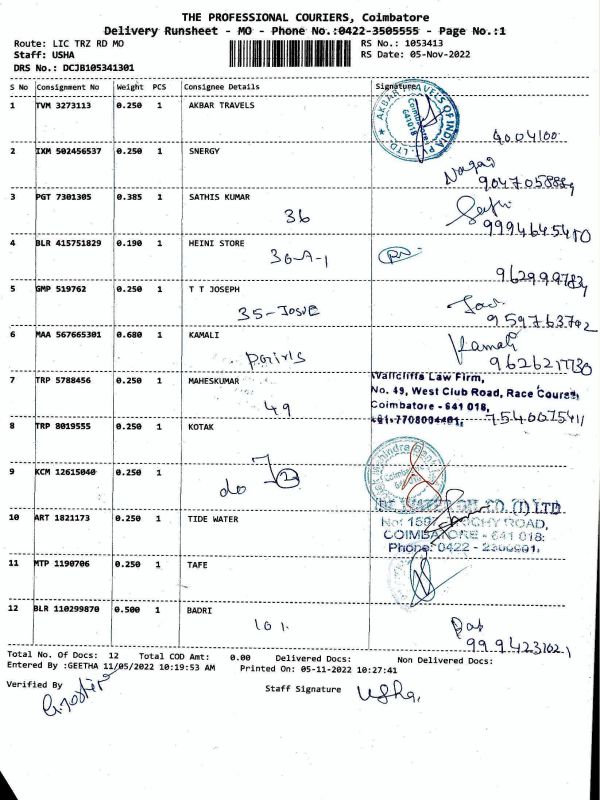 THE PROFESSIONAL COURIERS, Coimbatore
Delivery Runsheet - MO - Phone No.:0422-3505555 - Page No.:1
Route: LIC TRZ RD MO RS No.: 1053413
Staff: USHA RS Date: 05-Nov-2022
DRS No.: DCJB105341301
S No Consignment No Weight PCS Consignee Details Signature
1 TVM 3273113 0.250 1 AKBAR TRAVELS
AKBAR TRAVELS OF INDIA PVT. LTD. Coimbatore 641018
9004100
2 IXM 502456537 0.250 1 SNERGY
9047058889
3 PGT 7301305 0.385 1 SATHIS KUMAR
36
9994645450
4 BLR 415751829 0.190 1 HEINI STORE
30-A-1
5 GMP 519762 0.250 1 T T JOSEPH
35-Josue
959763702
6 MAA 567665301 0.680 1 KAMALI
Kamali
7 TRP 5788456 0.250 1 MAHESKUMAR
49
Wallcliffs Law Firm,
No. 49, West Club Road, Race Course,
Coimbatore - 641 018,
+91-7708004401,
8 TRP 8019555 0.250 1 KOTAK
9 KCM 12615040 0.250 1
do
10 ART 1821173 0.250 1 TIDE WATER
CO. (I) LTD
ROAD,
COIMBATORE - 641 018.
Phone: 0422 -
11 MTP 1190706 0.250 1 TAFE
12 BLR 110299870 0.500 1 BADRI
101
9994231021
Total No. Of Docs: 12 Total COD Amt: 0.00 Delivered Docs: Non Delivered Docs:
Entered By :GEETHA 11/05/2022 10:19:53 AM Printed On: 05-11-2022 10:27:41
Verified By Staff Signature usha,